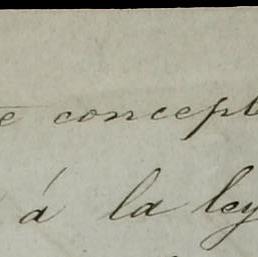 e concept
á la ley